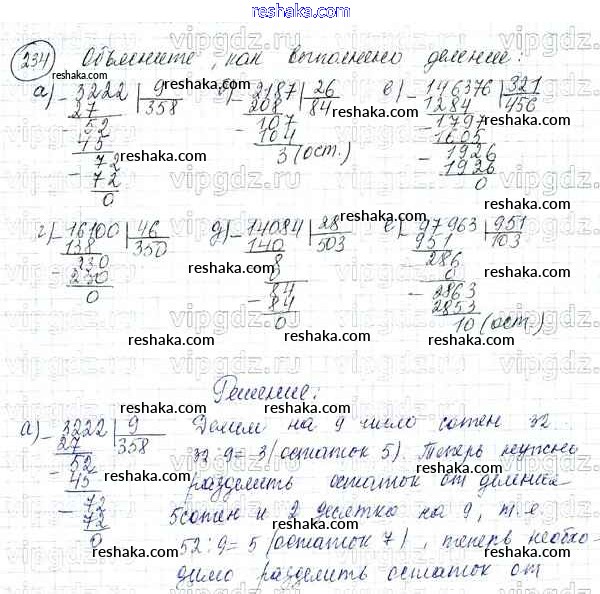 reshaka.com
234 Объясните, как выполнено деление:
а) 3222 | 9 б) 2187 | 26 в) 146376 | 321
27 358 208 84 1284 456
52 107 1797
45 104 1605
72 3 (ост.) 1926
72 1926
0 0
г) 16100 | 46 д) 14084 | 28 е) 97963 | 951
138 350 140 503 951 103
230 8 286
230 0 0
0 84 2863
84 2853
0 10 (ост.)
Решение:
а) 3222 | 9 Делим на 9 число сотен 32
27 358 32:9=3 (остаток 5). Теперь нужно
52 разделить остаток от деления
45 5 сотен и 2 десятка на 9, т.е.
72 52:9=5 (остаток 7), теперь необхо-
72 димо разделить остаток от
0